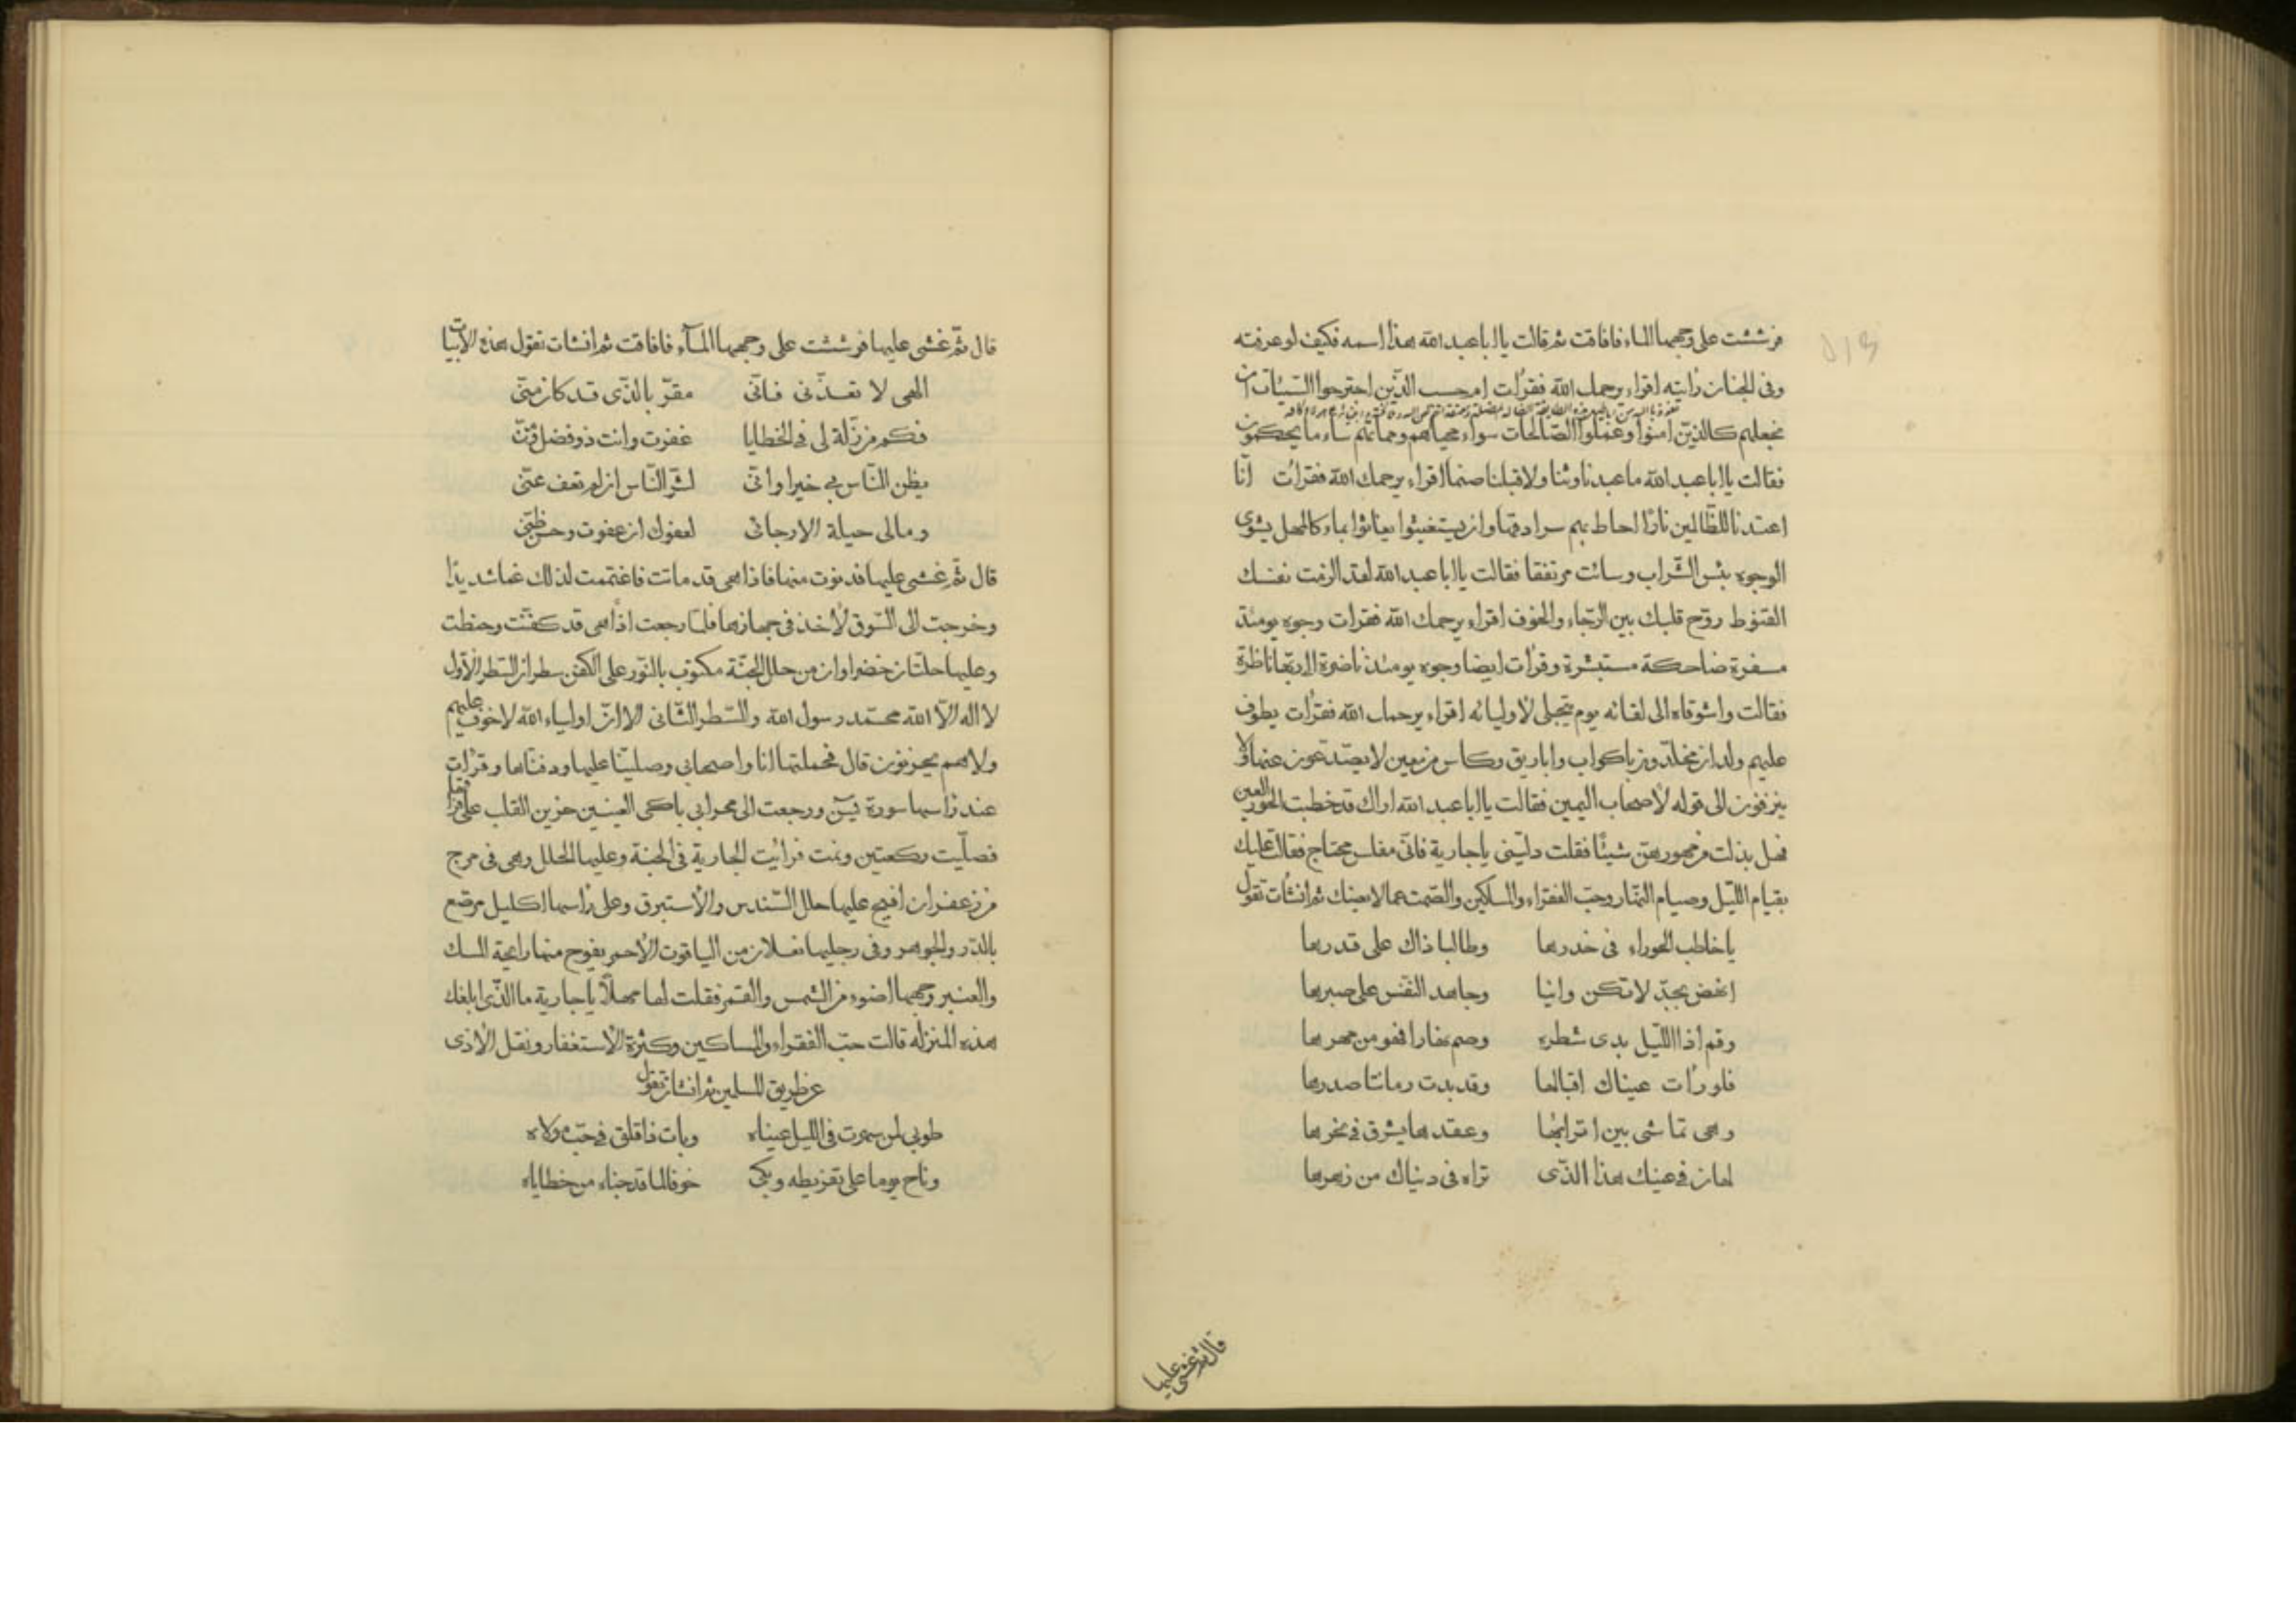 فرششت على وجهها الماء فافاقت ثم قالت يا ابا عبد الله هذا اسمه فكيف لو عرفته
وفى الجنان رأيته اقراء يرحمك الله فقرأت ام حسب الذين اجترحوا السيئات ان
نجعلهم كالذين امنوا وعملوا الصالحات سواء محياهم ومماتهم ساء ما يحكمون
فقالت يا ابا عبد الله ما عبدنا وثنا ولا قبلنا صنما اقراء يرحمك الله فقرأت انا
اعتدنا للظالمين نارًا احاط بهم سرادقها وان يستغيثوا يغاثوا بماء كالمهل يشوى
الوجوه بئس الشراب وسائت مرتفقا فقالت يا ابا عبد الله لقد الزمت نفسك
القنوط روّح قلبك بين الرّجاء والخوف اقراء يرحمك الله فقرات وجوه يومئذ
مسفرة ضاحكة مستبشرة وقرأت ايضا وجوه يومئذ ناضرة الى ربّها ناظرة
فقالت واشوقاه الى لقائه يوم يتجلى لأوليائه اقراء يرحمك الله فقرأت يطوف
عليهم ولدان مخلّدون باكواب واباريق وكاس من معين لا يصدّعون عنها ولا
ينزفون الى قوله لأصحاب اليمين فقالت يا ابا عبد الله اراك قد خطبت الحور العين
فهل بذلت من مهورهن شيئًا فقلت دلّينى يا جارية فانّى مفلس محتاج فقالت عليك
بقيام اللّيل وصيام النّهار وحبّ الفقراء والمساكين والصّمت عما لا يعينك ثم انشأت تقول
يا خاطب الحوراء فى خدرها وطالبا ذاك على قدرها
انهض بجدّ لا تكن وانيا وجاهد النّفس على صبرها
وقم اذا اللّيل بدى شطره وصم نهارا فهو من مهرها
فلو رأت عيناك اقبالها وقد بدت رمانتا صدرها
وهى تماشى بين اترابها وعقدها يشرق فى نحرها
لهان فى عينك هذا الذّى تراه فى دنياك من زهرها
قال ثم غشى عليها
قال ثمّ غشى عليها فرششت على وجهها المآء فافاقت ثم انشات تقول هذه الابيات
الهى لا تعذّبنى فانّى مقرّ بالذّى قد كان منّى
فكم من زلّة لى فى الخطايا غفرت وانت ذو فضل ومنّ
يظن النّاس بى خيرا وانّى لشرّ النّاس ان لم تعف عنّى
ومالى حيلة الا رجائى لعفوك ان عفوت وحسن ظنّى
قال ثمّ غشى عليها فدنوت منها فاذا هى قد ماتت فاغتممت لذلك غما شديدا
وخرجت الى السّوق لأخذ فى جهازها فلمّا رجعت اذا هى قد كفّنت وحنطت
وعليها حلّتان خضراوان من حلل الجنّة مكتوب بالنّور على الكفن سطران السّطر الأول
لا اله الاّ الله محمّد رسول الله والسّطر الثّانى الا انّ اولياء الله لا خوف عليهم
ولا هم يحزنون قال فحملتها انا واصحابى وصلينا عليها ودفنّاها وقرأت
عند رأسها سورة يس ورجعت الى محرابى باكى العينين حزين القلب على فراقها
فصلّيت ركعتين ونمت فرأيت الجارية فى الجنة وعليها الحلل وهى فى مرج
من زعفران افيح عليها حلل السّندس والأستبرق وعلى رأسها اكليل مرصّع
بالدّر والجوهر وفى رجليها نعلان من الياقوت الأحمر يفوح منها رايحة المسك
والعنبر وجهها اضوء من الشمس والقمر فقلت لها مهلاً يا جارية ما الذّى ابلغك
هذه المنزلة قالت حبّ الفقراء والمساكين وكثرة الأستغفار ونقل الأذى
عن طريق المسلمين ثم انشات تقول
طوبى لمن سهرت فى الليل عيناه وبات ذا قلق فى حبّ مولاه
وناح يوما على تفريطه وبكى خوفا لما قد جناه من خطاياه